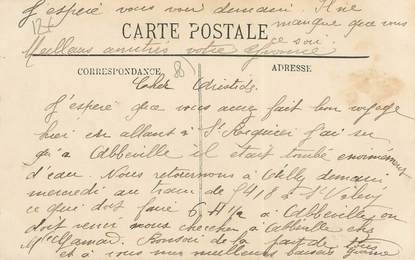 J'espère vous voir demain. Il ne
manque que vous
ce soir.
124
Meilleurs amitiés votre Yvonne
CARTE POSTALE
CORRESPONDANCE
ADRESSE
Cher Aristide.
J'espère que vous avez fait bon voyage
hier en allant à St Riquier j'ai su
qu'à Abbeville il était tombé énormément
d'eau. Nous retournons à demain
mercredi au train de 5 h 18 à St Valery
ce que doit faire 6 H ½ à Abbeville on
doit venir nous chercher à Abbeville chez
Mme Mamad. Bonsoir de la part de tous
et à vous mes meilleurs baisers Yvonne